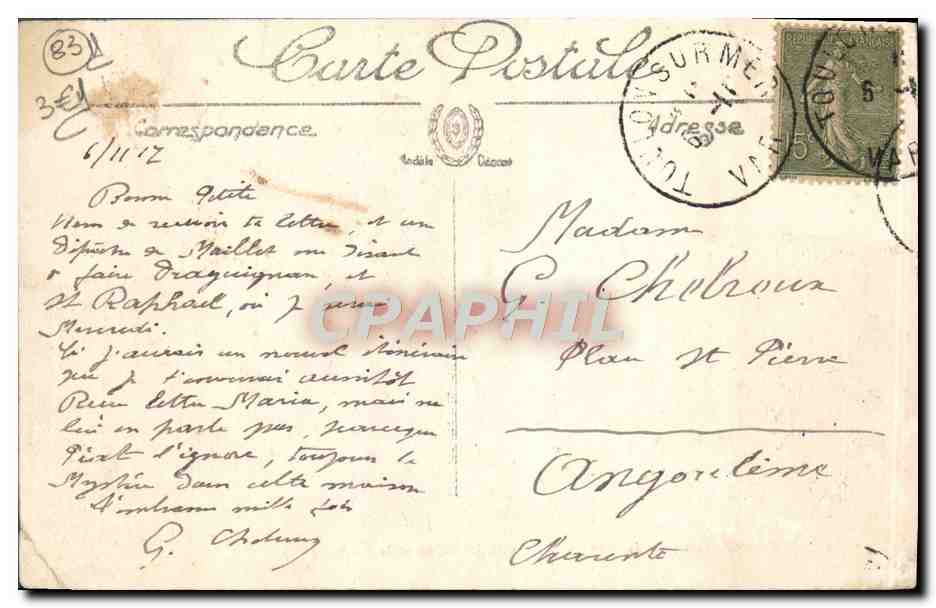 83
3€
Carte Postale
Correspondance
Adresse
Modèle Déposé
3
TOULON SUR MER
VAR
6 -11
REPUBLIQUE FRANÇAISE
15c
TOULON
6
VAR
6/11 17
Bonne Petite
Viens de recevoir ta lettre, et une
Dépêche de Maillet me disant
faire Draguignan, et
St Raphael, où je serai
Mercredi.
Si j'aurais un nouvel itinéraire
je t'enverrai aussitôt
Reçu lettre Maria, mais ne
lui en parle pas, parceque
l'ignore, toujours le
Mystère dans cette maison
t'embrasse mille fois
G.
Madame
G. Chebroux
Place St Pierre
Angoulême
Charente
CPAPHIL